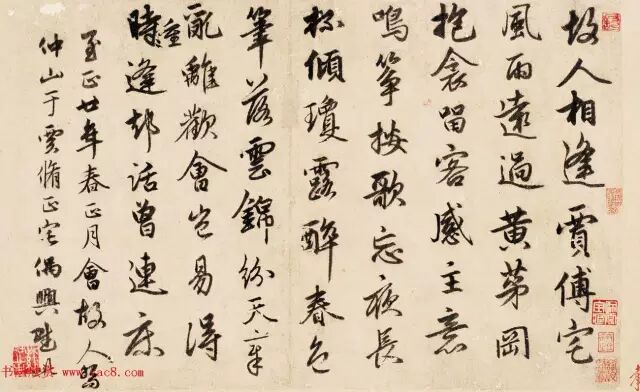 故人相逢賈傅宅
風雨遠過黃茅岡
抱衾留客感主意
鳴箏按歌忘夜長
杯傾瓊露醉春色
筆落雲錦紛天章
亂離歡會豈易得
時重逢却話曾連床
至正廿年春正月會故人馬
仲山于雲脩正宅偶興
ac8.com